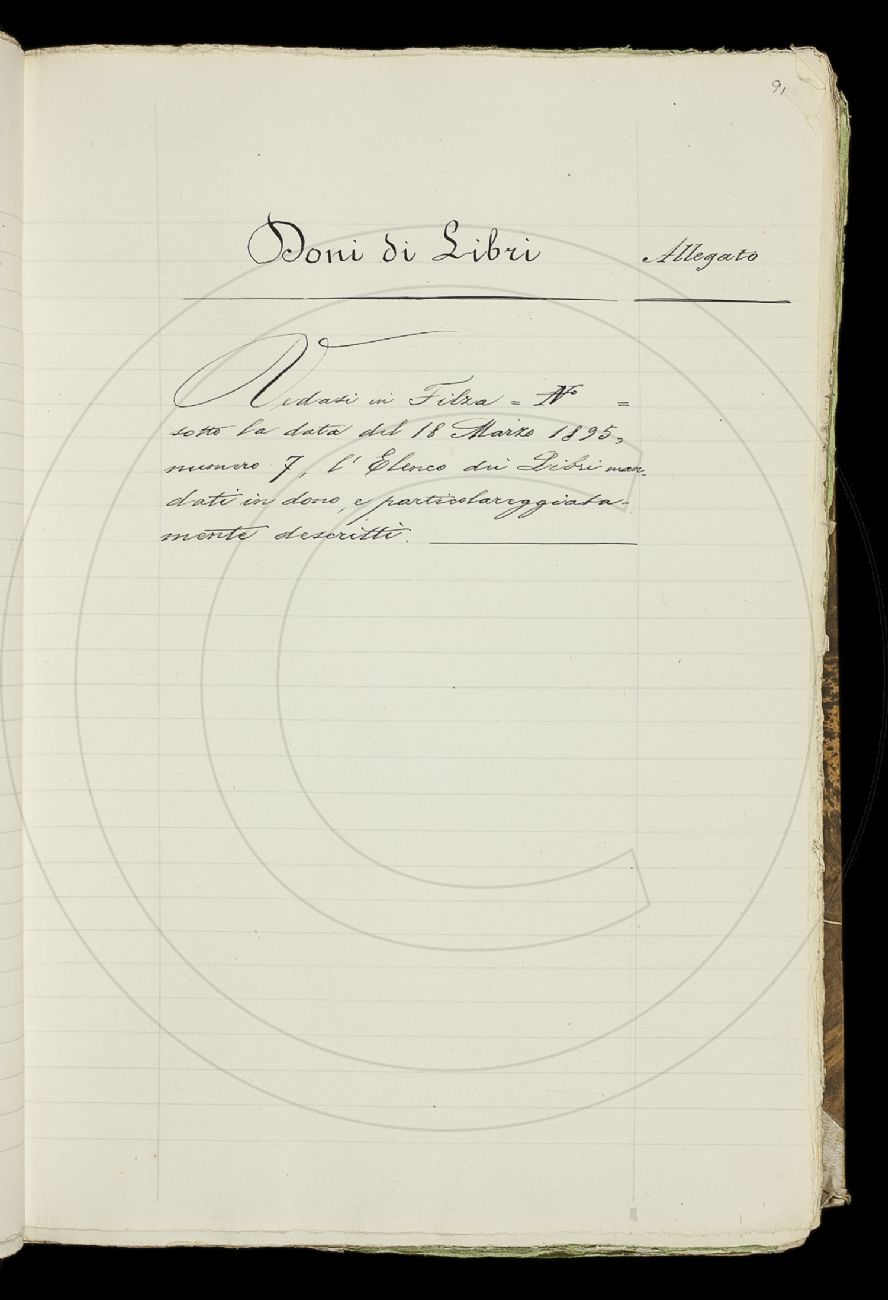 91
Doni di Libri Allegato
Vedasi in Filza = N° =
sotto la data del 18 Marzo 1895,
numero 7, l'Elenco dei Libri man-
dati in dono, e particolareggiata-
mente descritti.